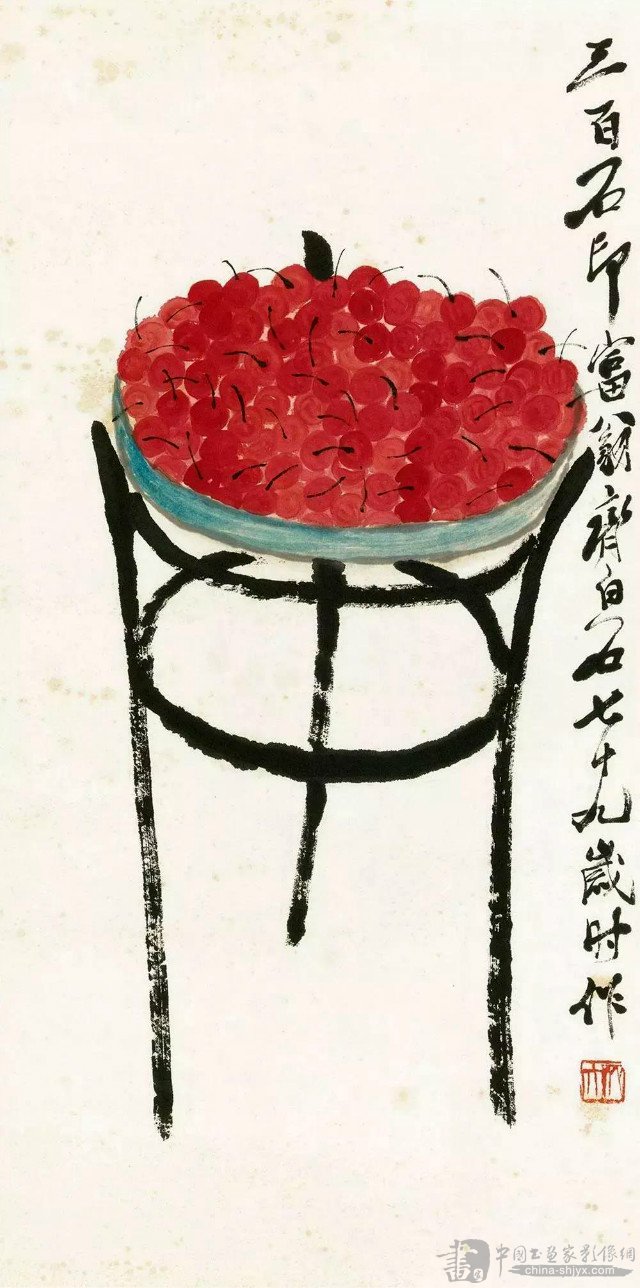 三百石印富翁齊白石七十九歲时作
中国书画家影像網
china-shjyx.com